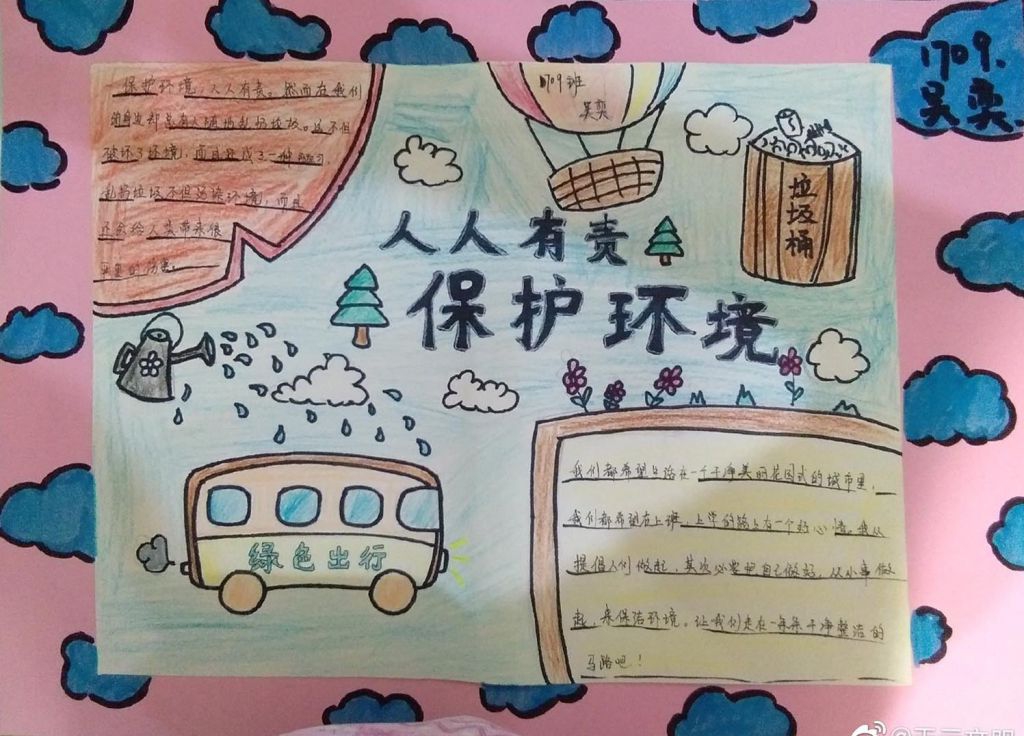 保护环境，人人有责。然而在我们
的身边却总有人随地乱扔垃圾。这不但
破坏了环境，而且
乱扔垃圾不但污染环境，而且
还会给人类带来很
1709班
吴奕
1709.
吴奕
垃圾桶
人人有责
保护环境
绿色出行
我们都希望生活在一个干净美丽花园式的城市里，
我们都希望在上班、上学的路上有一个好心情。我从
提倡人们做起，其次必要把自己做好，从小事做
起，来保洁环境。让我们走在一条条干净整洁的
马路吧！